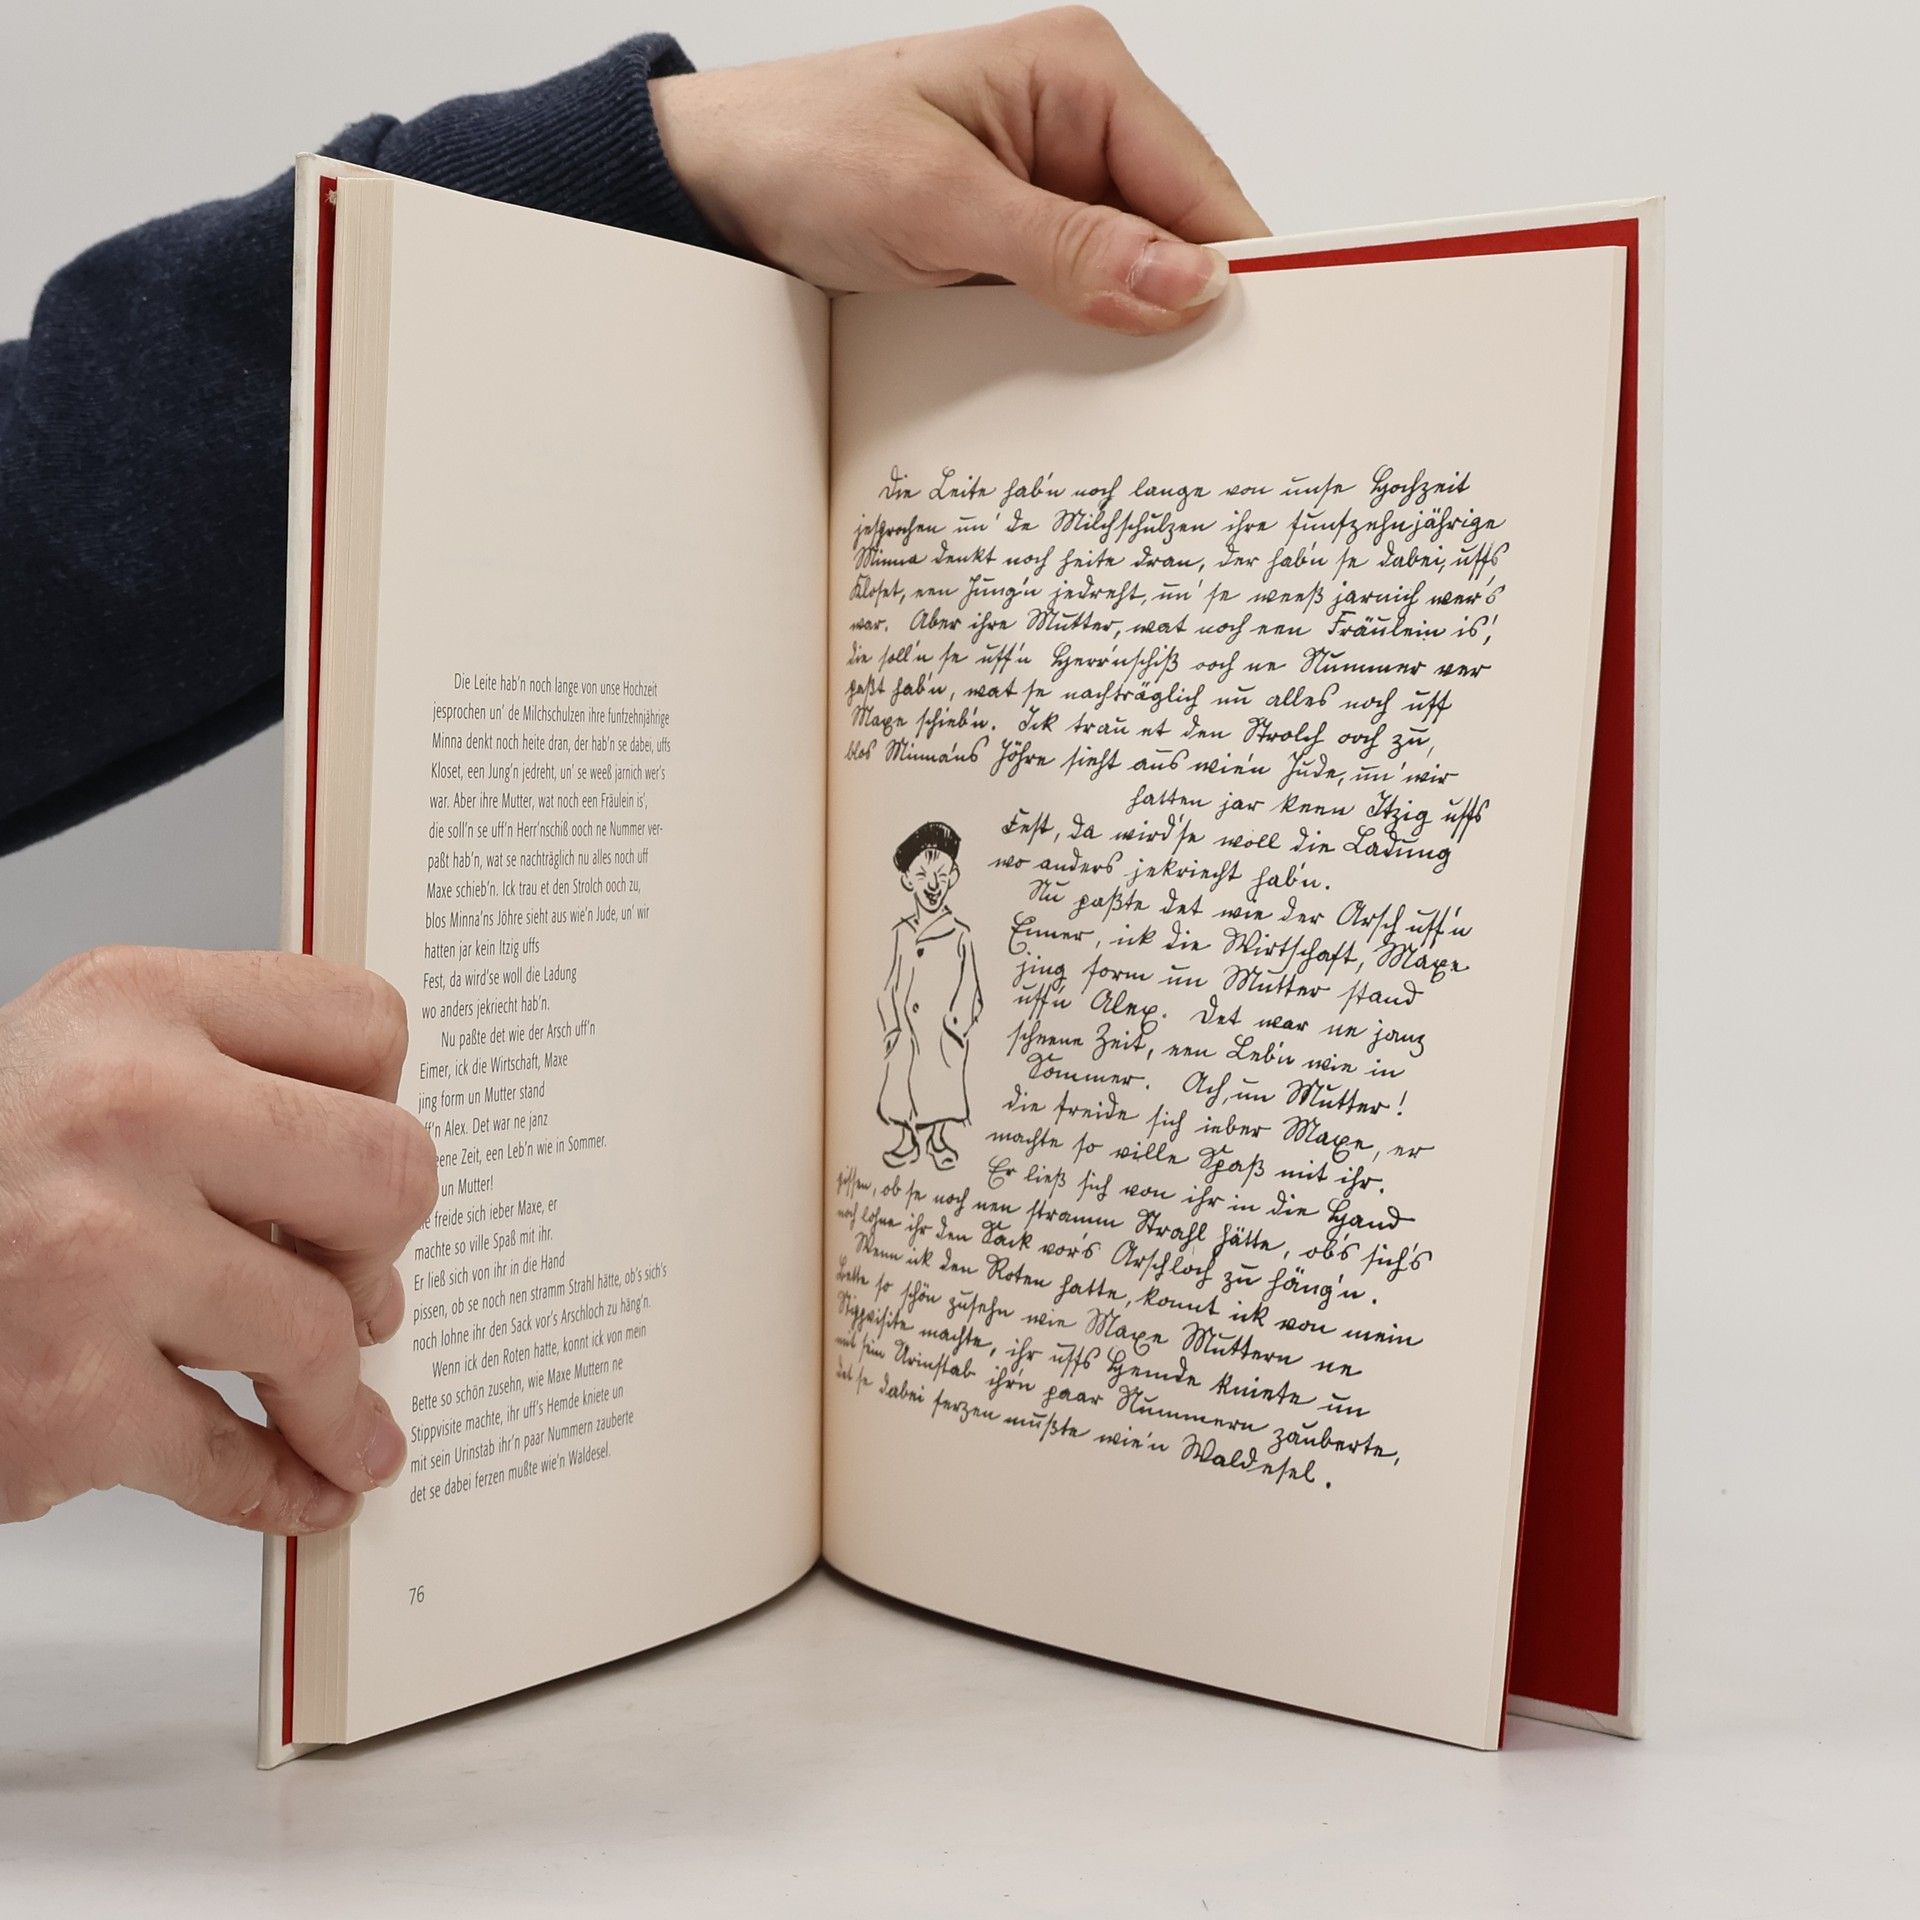 Die Leite hab'n noch lange von unse Hochzeit
jesprochen un' de Milchschulzen ihre funfzehnjährige
Minna denkt noch heite dran, der hab'n se dabei, uffs
Kloset, een Jung'n jedreht, un' se weeß jarnich wer's
war. Aber ihre Mutter, wat noch een Fräulein is',
die soll'n se uff'n Herr'nschiß ooch ne Nummer ver-
paßt hab'n, wat se nachträglich nu alles noch uff
Maxe schieb'n. Ick trau et den Strolch ooch zu,
blos Minna'ns Jöhre sieht aus wie'n Jude, un' wir
hatten jar kein Itzig uffs
Fest, da wird'se woll die Ladung
wo anders jekriecht hab'n.
Nu paßte det wie der Arsch uff'n
Eimer, ick die Wirtschaft, Maxe
jing form un Mutter stand
Alex. Det war ne janz
Zeit, een Leb'n wie in Sommer.
un Mutter!
freide sich ieber Maxe, er
machte so ville Spaß mit ihr.
Er ließ sich von ihr in die Hand
pissen, ob se noch nen stramm Strahl hätte, ob's sich's
noch lohne ihr den Sack vor's Arschloch zu häng'n.
Wenn ick den Roten hatte, konnt ick von mein
Bette so schön zusehn, wie Maxe Muttern ne
Stippvisite machte, ihr uff's Hemde kniete un
mit sein Urinstab ihr'n paar Nummern zauberte
det se dabei ferzen mußte wie'n Waldesel.
76
Die Leite hab'n noch lange von unse Hochzeit
jesprochen un' de Milchschulzen ihre funfzehnjährige
Minna denkt noch heite dran, der hab'n se dabei, uffs
Kloset, een Jung'n jedreht, un' se weeß jarnich wer's
war. Aber ihre Mutter, wat noch een Fräulein is',
die soll'n se uff'n Herr'nschiß ooch ne Nummer ver
paßt hab'n, wat se nachträglich nu alles noch uff
Maxe schieb'n. Ick trau et den Strolch ooch zu,
blos Minna'ns Jöhre sieht aus wie'n Jude, un' wir
hatten jar keen Itzig uffs
Fest, da wird'se woll die Ladung
wo anders jekriecht hab'n.
Nu paßte det wie der Arsch uff'n
Eimer, ick die Wirtschaft, Maxe
jing form un Mutter stand
uff'n Alex. Det war ne janz
scheene Zeit, een Leb'n wie in
Sommer. Ach, un Mutter!
die freide sich ieber Maxe, er
machte so ville Spaß mit ihr.
Er ließ sich von ihr in die Hand
pissen, ob se noch nen stramm Strahl hätte, ob's sich's
noch lohne ihr den Sack vor's Arschloch zu häng'n.
Wenn ick den Roten hatte, konnt ick von mein
Bette so schön zusehn wie Maxe Muttern ne
Stippvisite machte, ihr uffs Hemde kniete un
mit sein Urinstab ihr'n paar Nummern zauberte,
det se dabei ferzen mußte wie'n Waldesel.